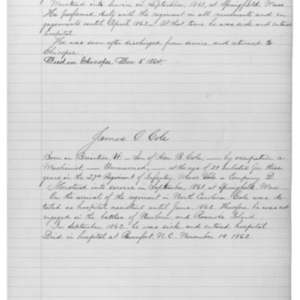 Mustered into service in September, 1861, at Springfield, Mass.
He performed duty with the regiment in all movements and en-
gagements until April 1862. At that time he was sick and entered
hospital.
He was soon after discharged from service and returned to
Chicopee.
Died in Chicopee, Dec. 
James O. Cole
Born in Brandon, Vt. Son of B. Cole - by occupation a
Mechanic - Unmarried - at age of 21 enlisted for three
years in the 27th Regiment of Infantry, Mass. Vols. in Company D.
Mustered into service in September, 1861 at Springfield, Mass.
On the arrival of the regiment in North Carolina Cole was de-
tailed as hospital assistant until June, 1862. therefore he was not
engaged in the battles of Newbern and Roanoke Island.
In September 1862 he was sick and entered hospital.
Died in hospital at Beaufort, N.C. November 14, 1862.